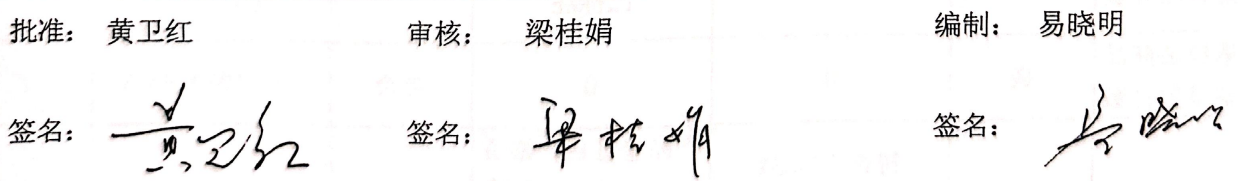 批准： 黄卫红 审核： 梁桂娟 编制： 易晓明
签名： 黄卫红 签名： 梁桂娟 签名： 易晓明